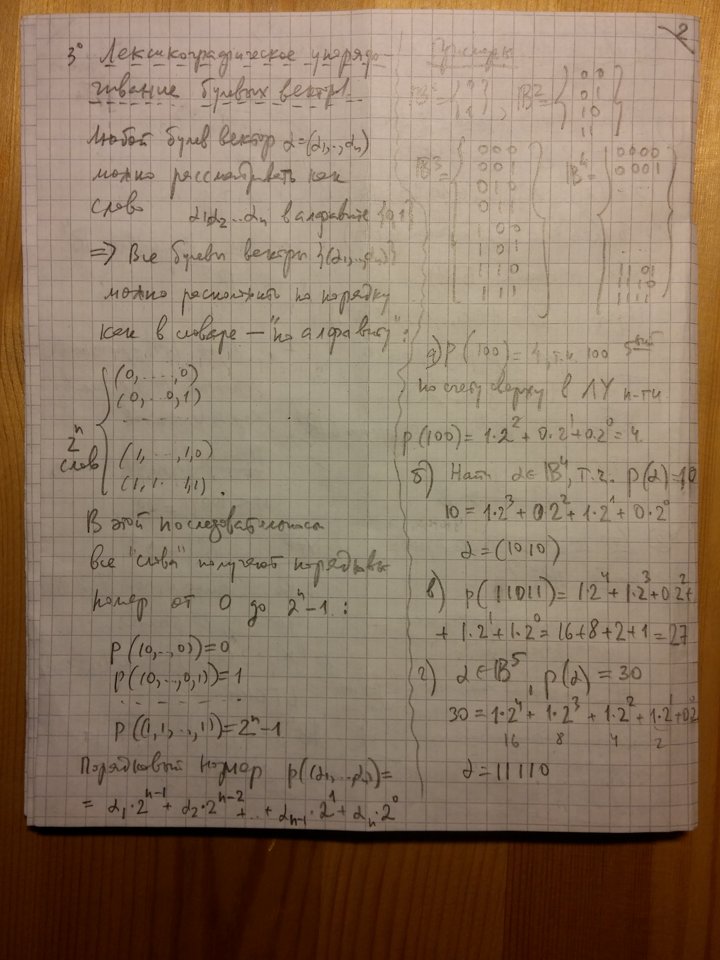 2
3° Лексикографическое упорядо-
чивание булевых вект.
Любой булев вектор α=(α₁,..,αₙ)
можно рассматривать как
слово α₁α₂...αₙ в алфавите {0,1}
⇒ Все булевы векторы {(α₁,..,αₙ)}
можно расположить по порядку
как в словаре — "по алфавиту":
(0,....,0)
(0,...,0,1)
2ⁿ
слов
(1,....,1,0)
(1,1....,1,1).
В этой последовательности
все "слова" получают порядковый
номер от 0 до 2ⁿ-1:
p((0,..,0))=0
p((0,..,0,1))=1
p((1,1,..,1))=2ⁿ-1
Порядковый номер p((α₁,..,αₙ))=
= α₁·2ⁿ⁻¹+ α₂·2ⁿ⁻²+..+ αₙ₋₁·2¹+ αₙ·2⁰
Примеры
B²=
00
01
10
11
B³=
000
001
010
011
100
101
110
111
B⁴=
0000
0001
...
...
1101
1110
1111
а) p(100)=4, т.к. 100 5ый
по счету сверху в ЛУ
p(100)=1·2²+0·2¹+0·2⁰=4
б) Найти α∈B⁴, т.ч. p(α)=10
10=1·2³+0·2²+1·2¹+0·2⁰
α=(1010)
в) p(11011)=1·2⁴+1·2³+0·2²+
+1·2¹+1·2⁰=16+8+2+1=27
г) α∈B⁵, p(α)=30
30=1·2⁴+1·2³+1·2²+1·2¹+0·2⁰
16 8 4 2
α=11110